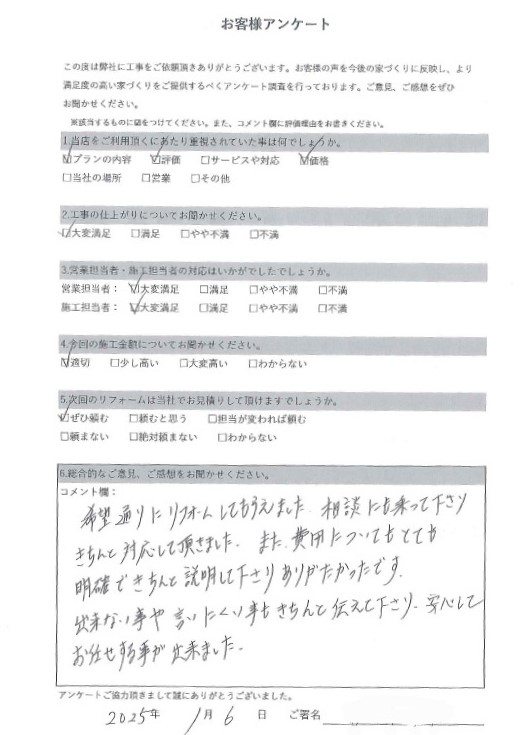 お客様アンケート
この度は弊社に工事をご依頼頂きありがとうございます。お客様の声を今後の家づくりに反映し、より
満足度の高い家づくりをご提供するべくアンケート調査を行っております。ご意見、ご感想をぜひ
お聞かせください。
※該当するものに☑をつけてください。また、コメント欄に評価理由をお書きください。
1.当店をご利用頂くにあたり重視されていた事は何でしょうか。
☑プランの内容 ☑評価 □サービスや対応 ☑価格
□当社の場所 □営業 □その他
2.工事の仕上がりについてお聞かせください。
☑大変満足 □満足 □やや不満 □不満
3.営業担当者・施工担当者の対応はいかがでしたでしょうか。
営業担当者： ☑大変満足 □満足 □やや不満 □不満
施工担当者： ☑大変満足 □満足 □やや不満 □不満
4.今回の施工金額についてお聞かせください。
☑適切 □少し高い □大変高い □わからない
5.次回のリフォームは当社でお見積りして頂けますでしょうか。
☑ぜひ頼む □頼むと思う □担当が変われば頼む
□頼まない □絶対頼まない □わからない
6.総合的なご意見、ご感想をお聞かせください。
コメント欄：
希望通りにリフォームしてもらえました。相談にも乗って下さり
きちんと対応して頂きました。また、費用についてもとても
明確できちんと説明して下さりありがたかったです。
出来ない事や言いにくい事もきちんと伝えて下さり、安心して
お任せする事が出来ました。
アンケートご協力頂きまして誠にありがとうございました。
2025年 1月 6日 ご署名